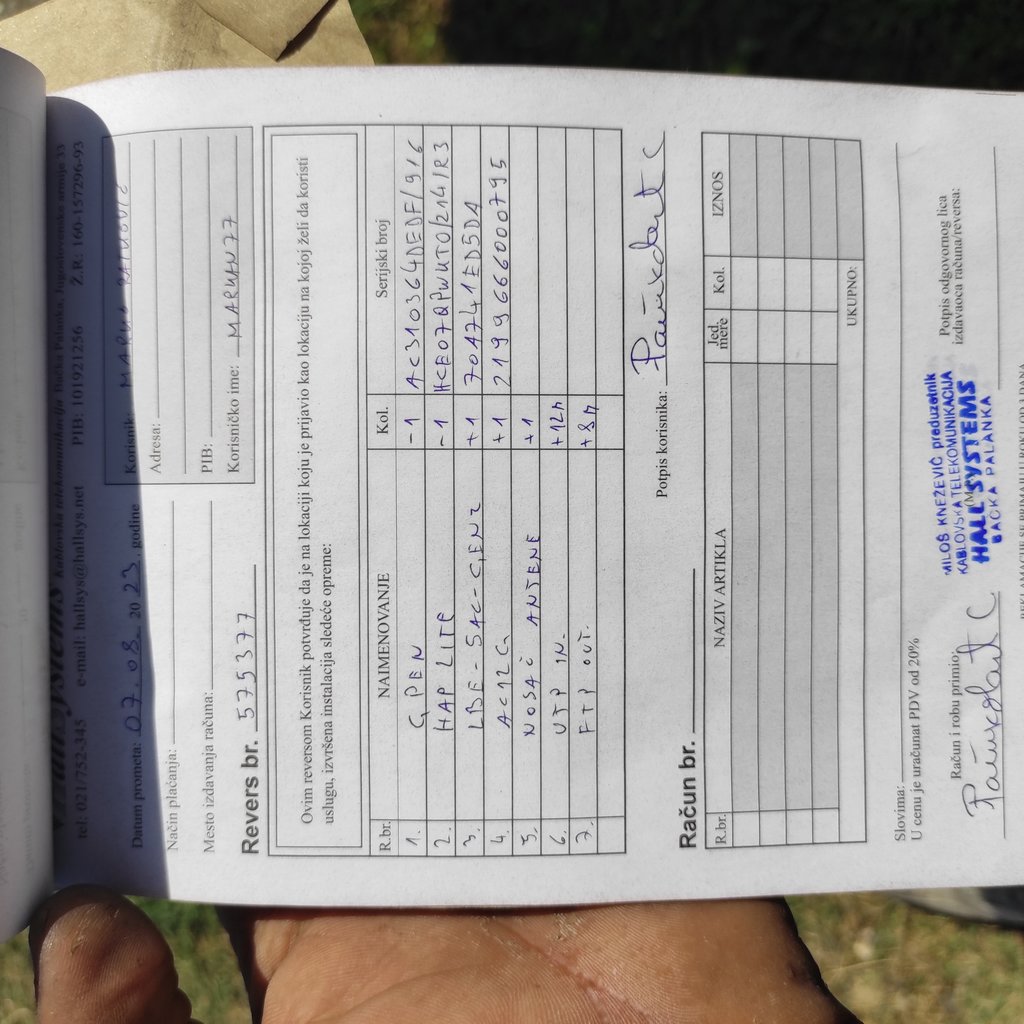 Kablovska telekomunikacija Bačka Palanka, Jugoslovenske armije 33
tel: 021/752-345 e-mail: hallsys@hallsys.net PIB: 101921256 Ž.R.: 160-157296-93
Datum prometa: 07.08. 2023. godine
Način plaćanja:
Mesto izdavanja računa:
Revers br. 575377
Korisnik:
Adresa:
PIB:
Korisničko ime: MARWAN77
Ovim reversom Korisnik potvrđuje da je na lokaciji koju je prijavio kao lokaciju na kojoj želi da koristi
uslugu, izvršena instalacija sledeće opreme:
R.br. NAIMENOVANJE Kol. Serijski broj
1. GPEN -1 AC310364DEDF/916
2. HAP LITE -1 HCE07QPWUTO/214IR3
3. LBE-5AC-GEN2 +1 704741ED5DA
4. AC12G +1 2199666000795
5. NOSAČ ANTENE +1
6. UTP IN. +12m
7. FTP OUT. +8m
Potpis korisnika:
Račun br.
R.br. NAZIV ARTIKLA Jed. mere Kol. IZNOS
UKUPNO:
Slovima:
U cenu je uračunat PDV od 20%
Račun i robu primio:
MILOŠ KNEŽEVIĆ preduzetnik
KABLOVSKA TELEKOMUNIKACIJA
HALL SYSTEMS
BAČKA PALANKA
Potpis odgovornog lica
izdavaoca računa/reversa: